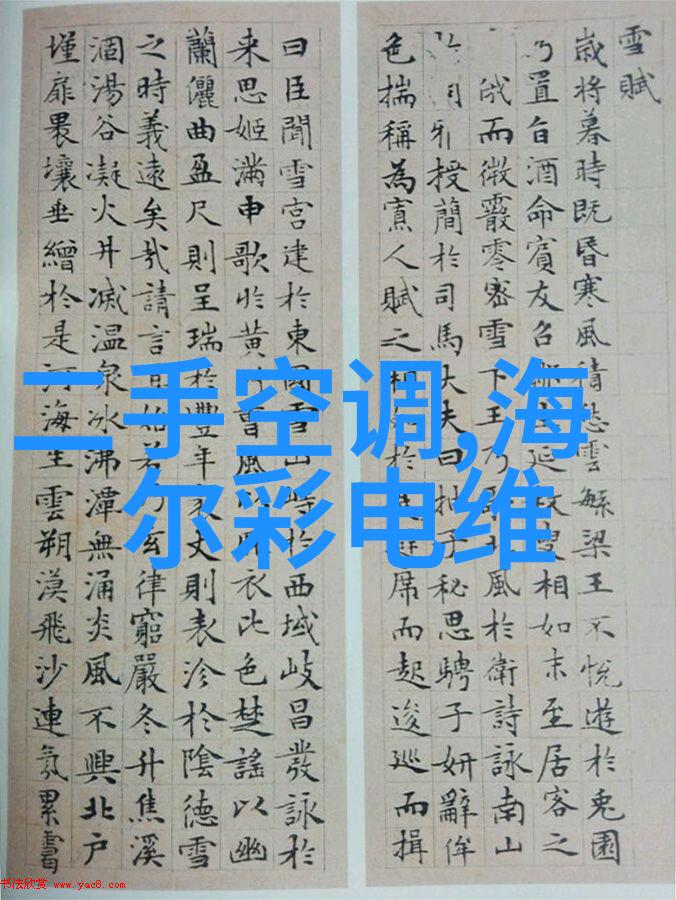 雪賦
歲將暮時既昏寒風積愁雲繁梁王不悅遊於兔園
乃置旨酒命賓友召延枚叟相如末至居客之
俄而微霰零密雪下王乃北風於衛詩詠南山
授簡於司馬大夫曰抽子秘思騁子妍辭侔
色揣稱為寡人賦之相如於是避席而起逡巡而揖
曰臣聞雪宮建於東國雪山峙於西域岐昌發詠於
来思姬滿申歌於黃竹曹風以麻衣比色楚謠以幽
蘭儷曲盈尺則呈瑞於豐年袤丈則表沴於陰德雪
之時義遠矣哉請言其始若乃玄律窮嚴冬升焦溪
涸湯谷凝火井滅温泉冰沸潭無涌炎風不興北户
墐扉畏壤垂繒於是河海生雲朔漠飛沙連氛累靄
二手空调,海
尔彩电维
书法欣赏 www.yac8.com